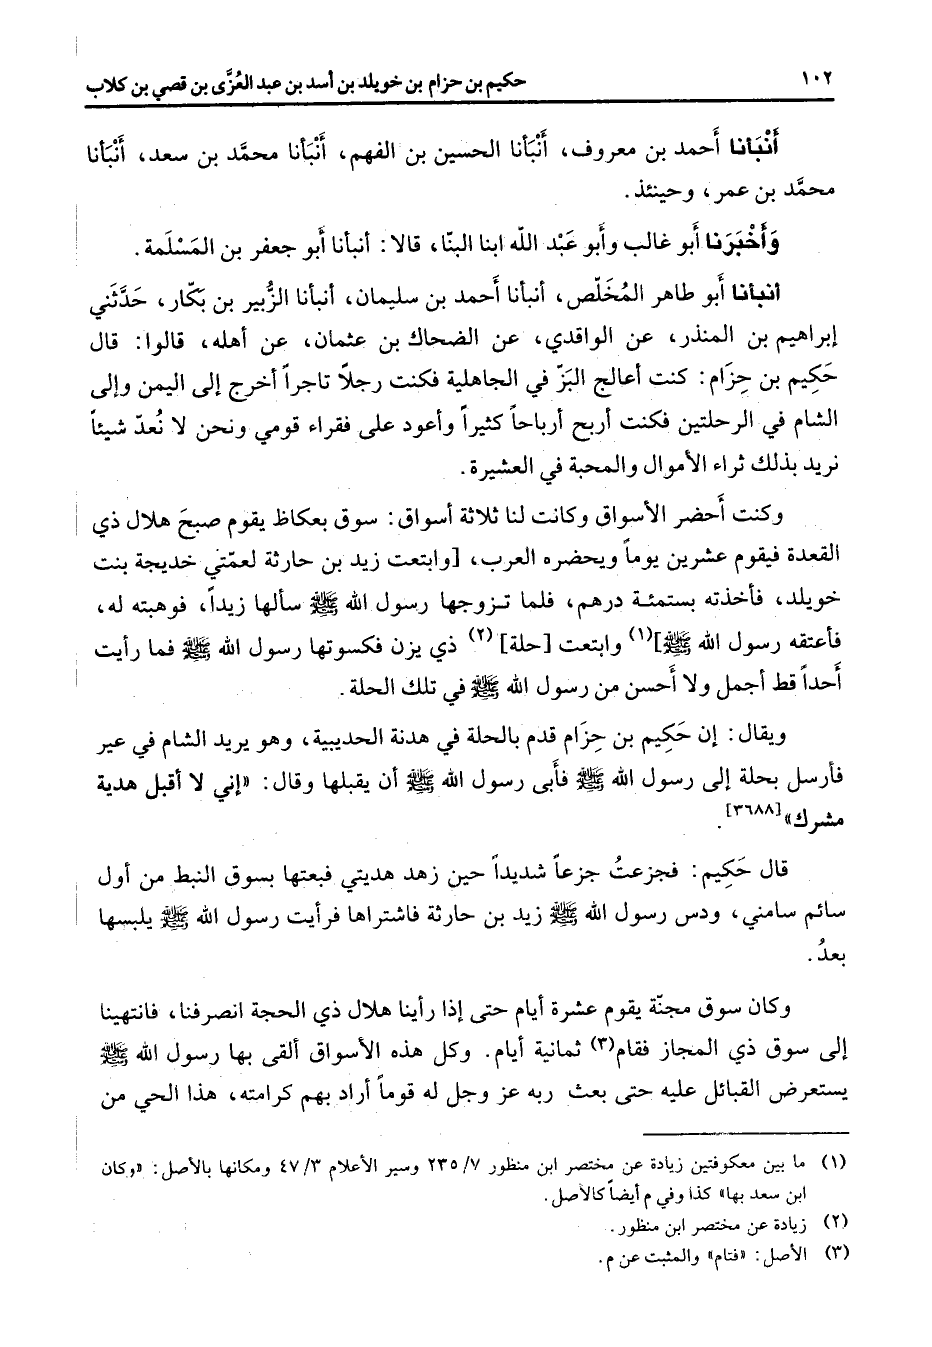 ١٠٢ حكيم بن حزام بن خويلد بن أسد بن عبد العُزَّى بن قصي بن كلاب
أَنْبَأنا أَحمد بن معروف، أَنْبَأنا الحسين بن الفهم، أَنْبَأنا محمَّد بن سعد، أَنْبَأنا
محمَّد بن عمر، وحينئذ.
وَأَخْبَرَنا أَبو غالب وأَبو عَبْد اللّه ابنا البنّا، قالا: أنبأنا أَبو جعفر بن المَسْلَمة.
أنبأنا أَبو طاهر المُخَلّص، أنبأنا أَحمد بن سليمان، أنبأنا الزُّبير بن بَكّار، حَدَّثَني
إبراهيم بن المنذر، عن الواقدي، عن الضحاك بن عثمان، عن أهله، قالوا: قال
حَكِيم بن حِزَام: كنت أعالج البَزّ في الجاهلية فكنت رجلاً تاجراً أخرج إلى اليمن وإلى
الشام في الرحلتين فكنت أربح أرباحاً كثيراً وأعود على فقراء قومي ونحن لا نُعدّ شيئاً
نريد بذلك ثراء الأموال والمحبة في العشيرة.
وكنت أَحضر الأسواق وكانت لنا ثلاثة أسواق: سوق بعكاظ يقوم صبحَ هلال ذي
القعدة فيقوم عشرين يوماً ويحضره العرب، [وابتعت زيد بن حارثة لعمّتي خديجة بنت
خويلد، فأخذته بستمئة درهم، فلما تزوجها رسول الله ﷺ سألها زيداً، فوهبته له،
فأعتقه رسول الله ﷺ](١) وابتعت [حلة](٢) ذي يزن فكسوتها رسول الله ﷺ فما رأيت
أَحداً قط أجمل ولا أَحسن من رسول الله ﷺ في تلك الحلة.
ويقال: إن حَكِيم بن حِزَام قدم بالحلة في هدنة الحديبية، وهو يريد الشام في عير
فأرسل بحلة إلى رسول الله ﷺ فأَبى رسول الله ﷺ أن يقبلها وقال: «إني لا أقبل هدية
مشرك»[٣٦٨٨].
قال حَكِيم: فجزعتُ جزعاً شديداً حين زهد هديتي فبعتها بسوق النبط من أول
سائم سامني، ودس رسول الله ﷺ زيد بن حارثة فاشتراها فرأيت رسول الله ﷺ يلبسها
بعدُ.
وكان سوق مجنّة يقوم عشرة أيام حتى إذا رأينا هلال ذي الحجة انصرفنا، فانتهينا
إلى سوق ذي المجاز فقام(٣) ثمانية أيام. وكل هذه الأسواق ألقى بها رسول الله ﷺ
يستعرض القبائل عليه حتى بعث ربه عز وجل له قوماً أراد بهم كرامته، هذا الحي من
(١) ما بين معكوفتين زيادة عن مختصر ابن منظور ٢٣٥/٧ وسير الأعلام ٤٧/٣ ومكانها بالأصل: «وكان
ابن سعد بها» كذا وفي م أيضاً كالأصل.
(٢) زيادة عن مختصر ابن منظور.
(٣) الأصل: «فتام» والمثبت عن م.